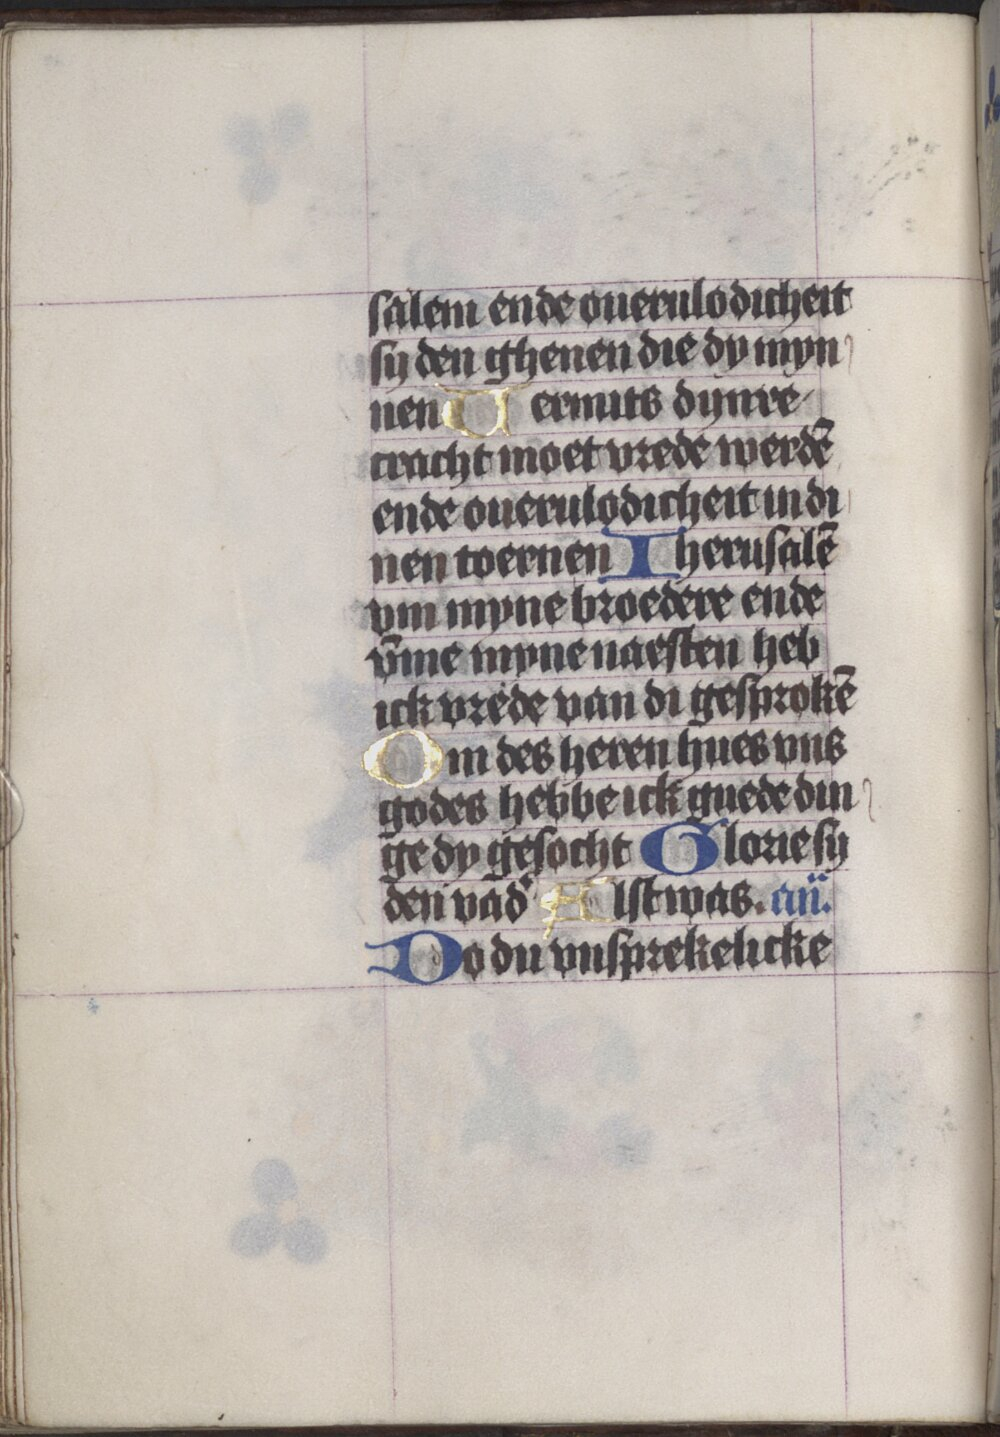 salem ende ouerulodicheit
sij den ghenen die dy myn
nen Uermits dijnre
cracht moet vrede werdē
ende ouerulodicheit in di
nen toernen Iherusalē
vm myne broedere ende
v̄me myne naesten heb
ick vrede van di gesprokē
Om des heren hues vns
godes hebbe ick guede din
ge dy gesocht Glorie sy
den vad' Alst was. an.
Do du vnsprekelicke